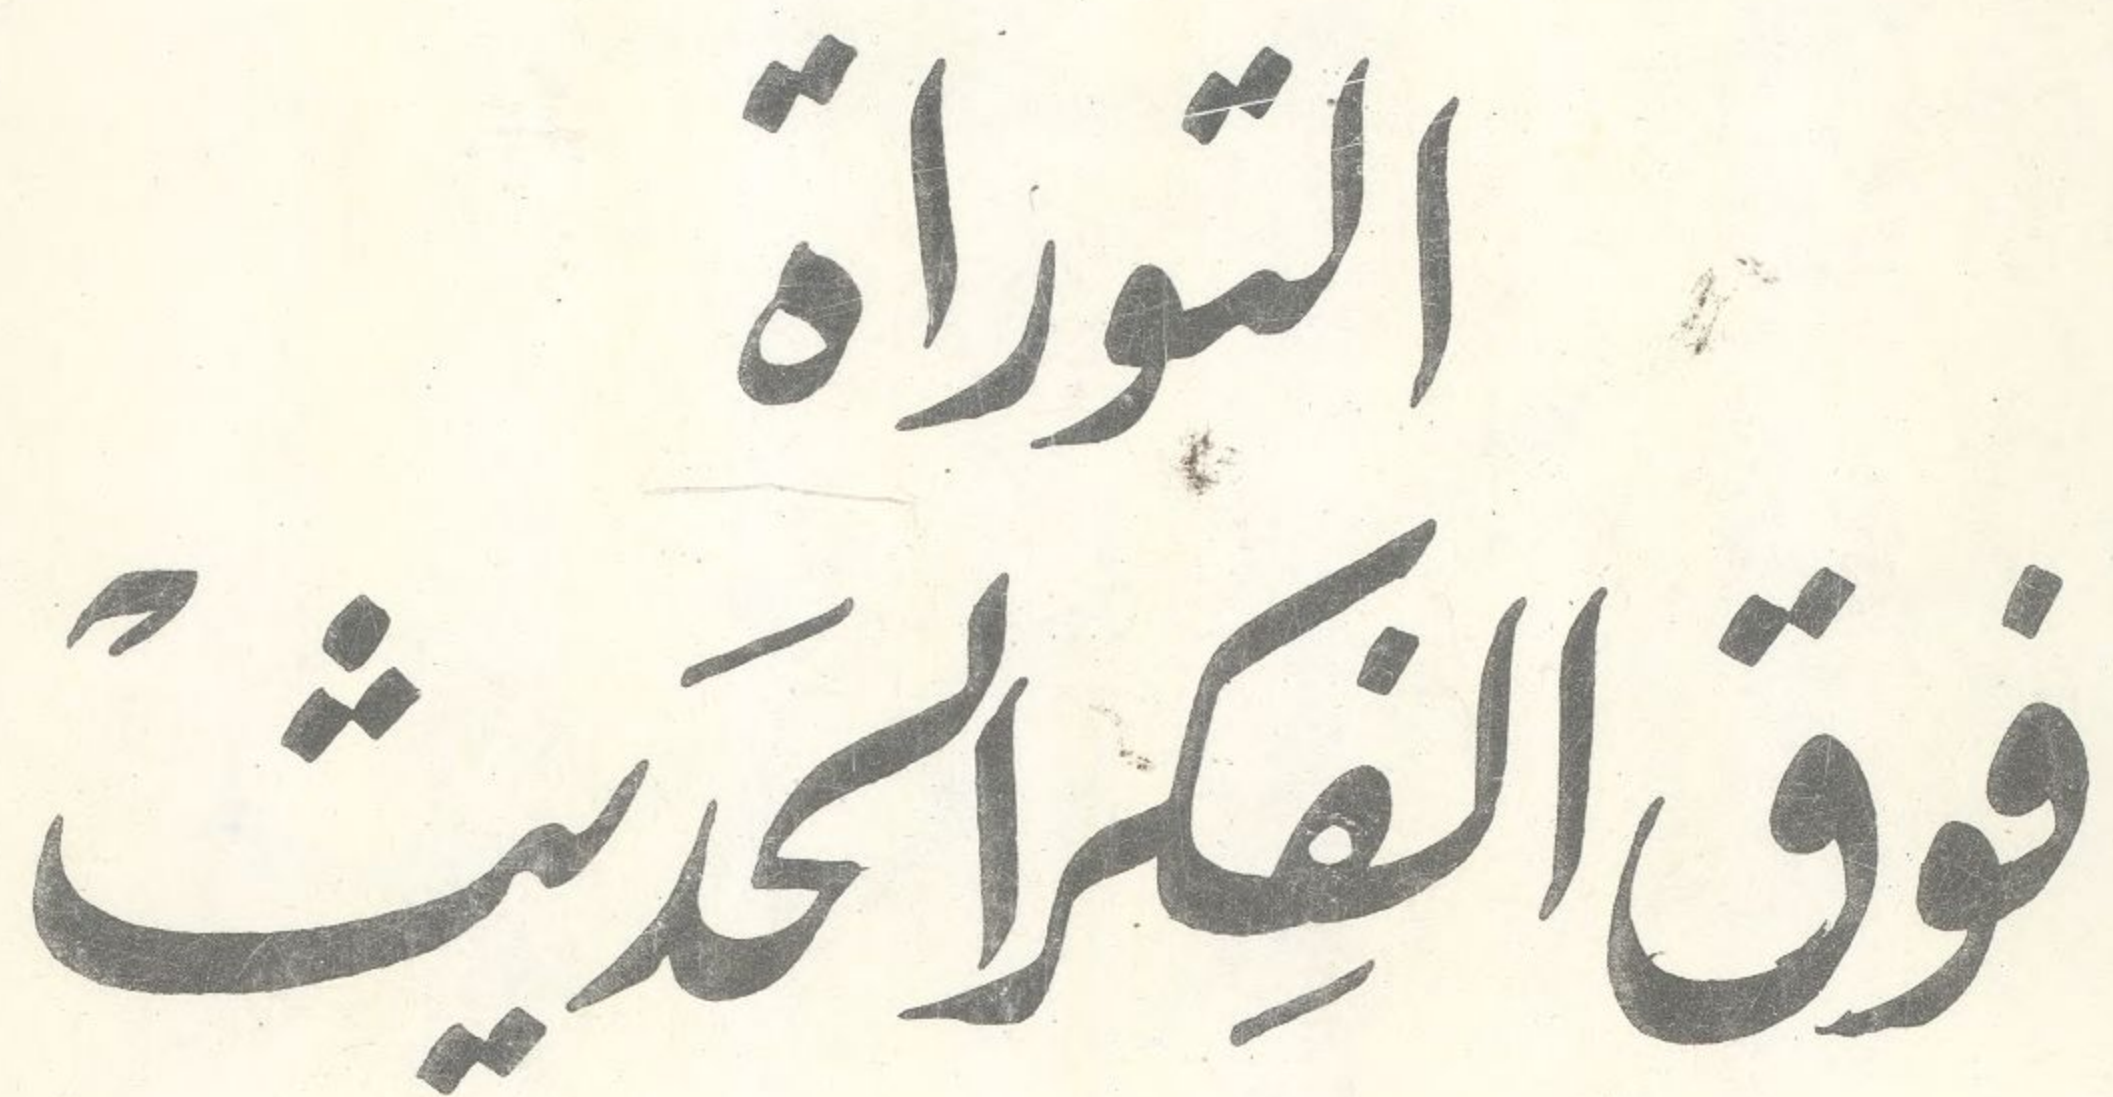 التوراة
فوق الفِكر الحَديث